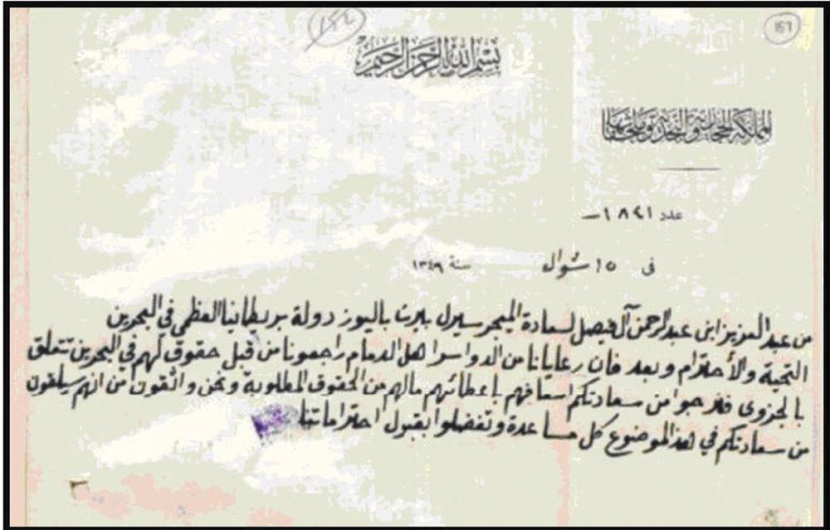 ١٥٦
بسم الله الرحمن الرحيم
المملكة الحجازية والنجدية وملحقاتها
عدد ١٨٢١
في ١٥ شوال سنة ١٣٤٩
من عبد العزيز ابن عبد الرحمن آل فيصل لسعادة الميجر سيرل باليوز دولة بريطانيا العظمى في البحرين
التحية والأحترام وبعد فان رعايانا من الدواسر اهل الدمام راجعونا من قبل حقوق لهم في البحرين تتعلق
من سعادتكم اسعافهم باعطائهم مالهم من الحقوق المطلوبة ونحن واثقون من انهم سيلقون
من سعادتكم في هذا الموضوع كل مساعدة وتفضلوا بقبول احتراماتنا